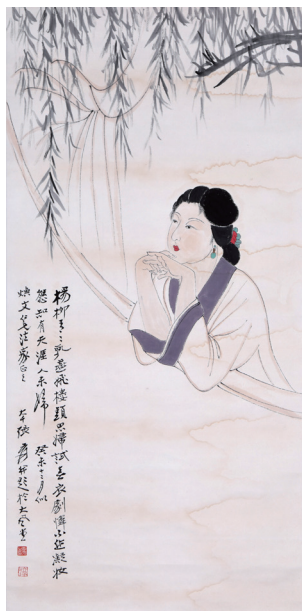 楊柳青々乳燕飛樓頭思婦試春衣劇憐小立凝妝
知有天涯人未歸 癸未十二月似
煥文仁兄法家正之 大千張爰并題於大風堂